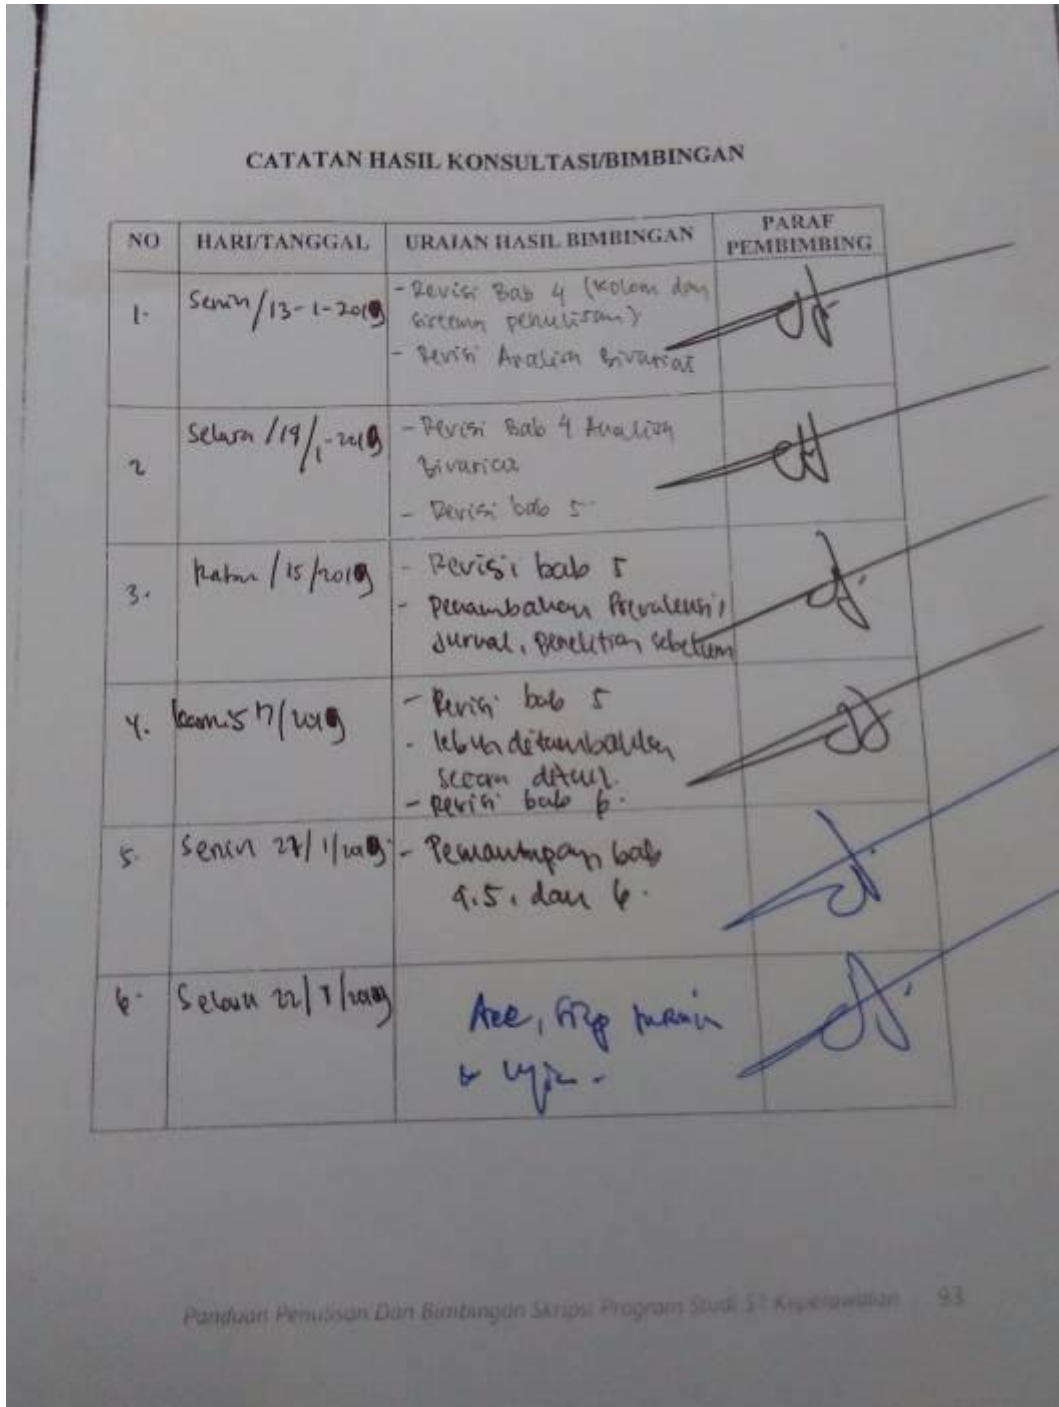 CATATAN HASIL KONSULTASI/BIMBINGAN
NO HARI/TANGGAL URAIAN HASIL BIMBINGAN PARAF PEMBIMBING
1. Senin/13-1-2019 - Revisi Bab 4 (kolom dan
sistem penulisan)
- Revisi Analisa Bivariat
2 Selasa /14/1-2019 - Revisi Bab 4 Analisa
Bivariat
- Revisi bab 5
3. Rabu /15/2019 - Revisi bab 5
- Penambahan Prevalensi,
Jurnal, penelitian sebelum
4. kamis 17/2019 - Revisi bab 5
- lebih ditambahkan
secara
- Revisi bab 6.
5. Senin 27/1/2019 - Pemantapan bab
4.5. dan 6.
6. Selasa 22/1/2019 Acc,
Panduan Penulisan Dan Bimbingan Skripsi Program Studi S1 Keperawatan 93